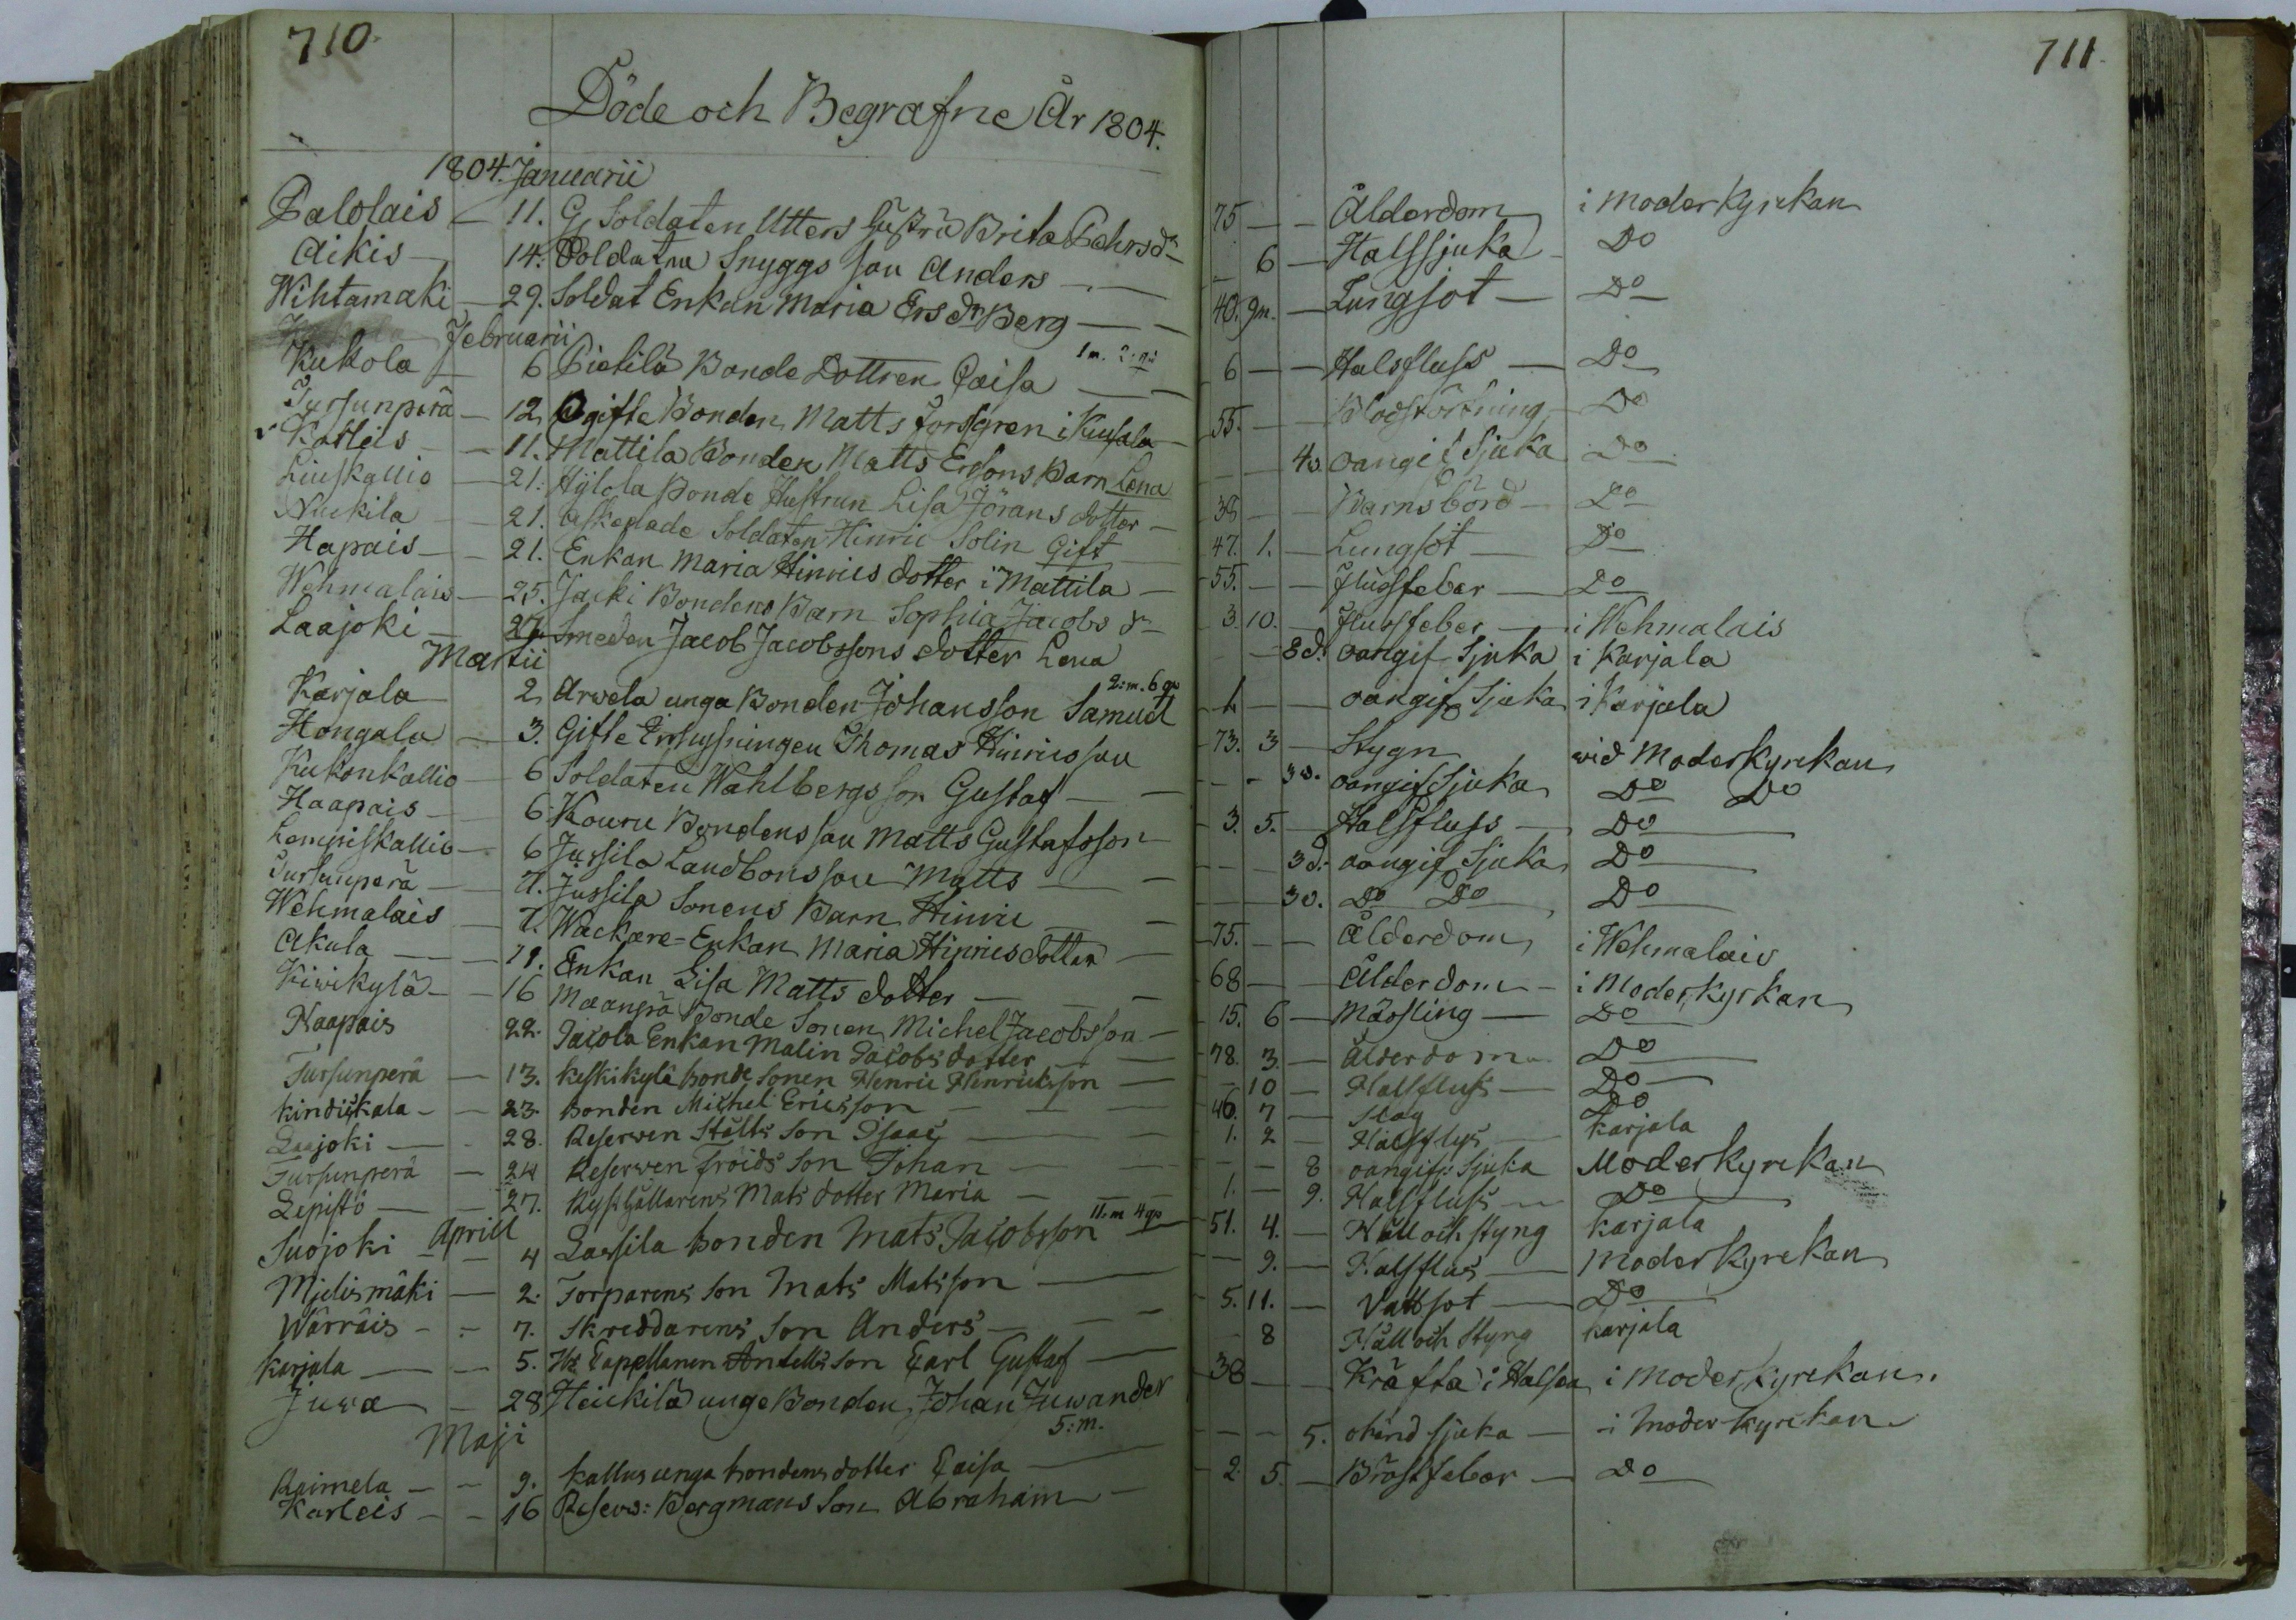 710.
Döde och Begrafne År 1804.
1804. Januarii
Palolais — 11. G. Soldaten Utters Hustru Brita Pehrs dr
Aikis — 14. Soldaten Snyggs son Anders — —
Wihtamaki — 29. Soldat Enkan Maria Ers dr Berg — —
Februarii
1 m. 2: qi
Kukola — 6 Pietilä Bonde Dottren Caisa — —
Tursunperä — 12 Ogifte Bonden Matts Forsgren i Kusala —
Karleis — 11. Mattila Bonden Matts Ersons Barn Lena
Liuskallio — 21. Hylola Bonde Hustrun Lisa Jörans dotter —
Nukila — 21. Afskedade Soldaten Hinric Solin Gift
Hapais — 21. Enkan Maria Hinrics dotter i Mattila —
Wehmalais — 25. Jacki Bondens Barn Sophia Jacobs dr
Laajoki — 27. Smeden Jacob Jacobssons dotter Lena
Martii
2: m. 6 qi
Karjala 2 Arwela unga Bonden Johansson Samuel
Hongala — 3. Gifte Inhysningen Thomas Hinricsson
Kukonkallio — 6 Soldaten Wahlbergs son Gustaf — —
Haapais — 6. Kouru Bondens son Matts Gustafsson
Lempiskallio — 6 Jussila Landbons son Matts — —
Tursunperä — 7. Jussila Sonens Barn Hinric —
Wehmalais — 7. Wackare-Enkan Maria Hinrics dotter —
Akula — 11. Enkan Lisa Matts dotter — —
Kiwikylä — 16 Maanpä Bonde Sonen Michel Jacobsson —
Haapais 22. Jacola Enkan Malin Jacobs dotter —
Tursunperä — 13. Keskikylä bonde sonen Henric Henricksson —
Kindickala — — 23. Bonden Michel Ericsson — — —
Laajoki — 28. Reserven Stålts Son Isaac — —
Tursunperä — 24 Reserven Fröids Son Johan — —
Lepistö — 27. Rysthållarens Mats dotter Maria —
Aprill
11. m 4 qi
Suojoki — 4 Lassila bonden Mats Jacobsson —
Mielismäki — 2. Torparens Son Mats Matsson —
Wärräis — 7. Skreddarens Son Anders — — —
Karjala — 5. Hr Capellanen Antells son Carl Gustaf —
Juva — 28 Heickilä unge Bonden Johan Juwander
Maji
5: m.
Raimela — 9. Kallus unga bondens dotter Caisa —
Karleis — 16 Reserv: Bergmans Son Abraham —
711.
75 — — Ålderdom i Moderkyrckan
6 — Halssjuka Do
40. 9 m. — Lungsot — Do
6 — — Halsfluss — Do
55. — — Blodstörtning Do
— — 4 d. oangif Sjuka Do
38 — — Barnsbörd — Do
47. 1. — Lungsot — Do
55. — — Flussfeber — Do
3. 10. — flussfeber — i Wehmalais
— 8 d. oangif Sjuka i Karjala
1 — — oangif Sjuka i Karjala
73. 3 — Stygn wid Moderkyrckan
— — 3 d. oangif Sjuka Do Do
3. 5. — Halsfluss — Do
— — 3 d. oangif Sjuka Do
— — 3 d. Do Do Do
75. — — Ålderdom i Wehmalais
68 — — Ålderdom — i Moderkyrkan
15. 6 — Mässling — Do
78. 3. — Ålderdom Do
— 10 — Halsfluss — Do
46. 7 — Slag Do
1. 2 — Halsflus — Karjala
— — 8 oangif: Sjuka Moderkyrckan
1. — 9. Halsfluss — Do
51. 4. — Håll och styng Karjala
— 9. — Halsflus — Moderkyrckan
5. 11. — Vattsot — Do
— 8 Håll och Styng Karjala
38 — — Kräfta i Halsen i Moderkyrckan.
— — 5. okänd sjuka — i Moderkyrckan
2. 5. — Bröstfeber — Do